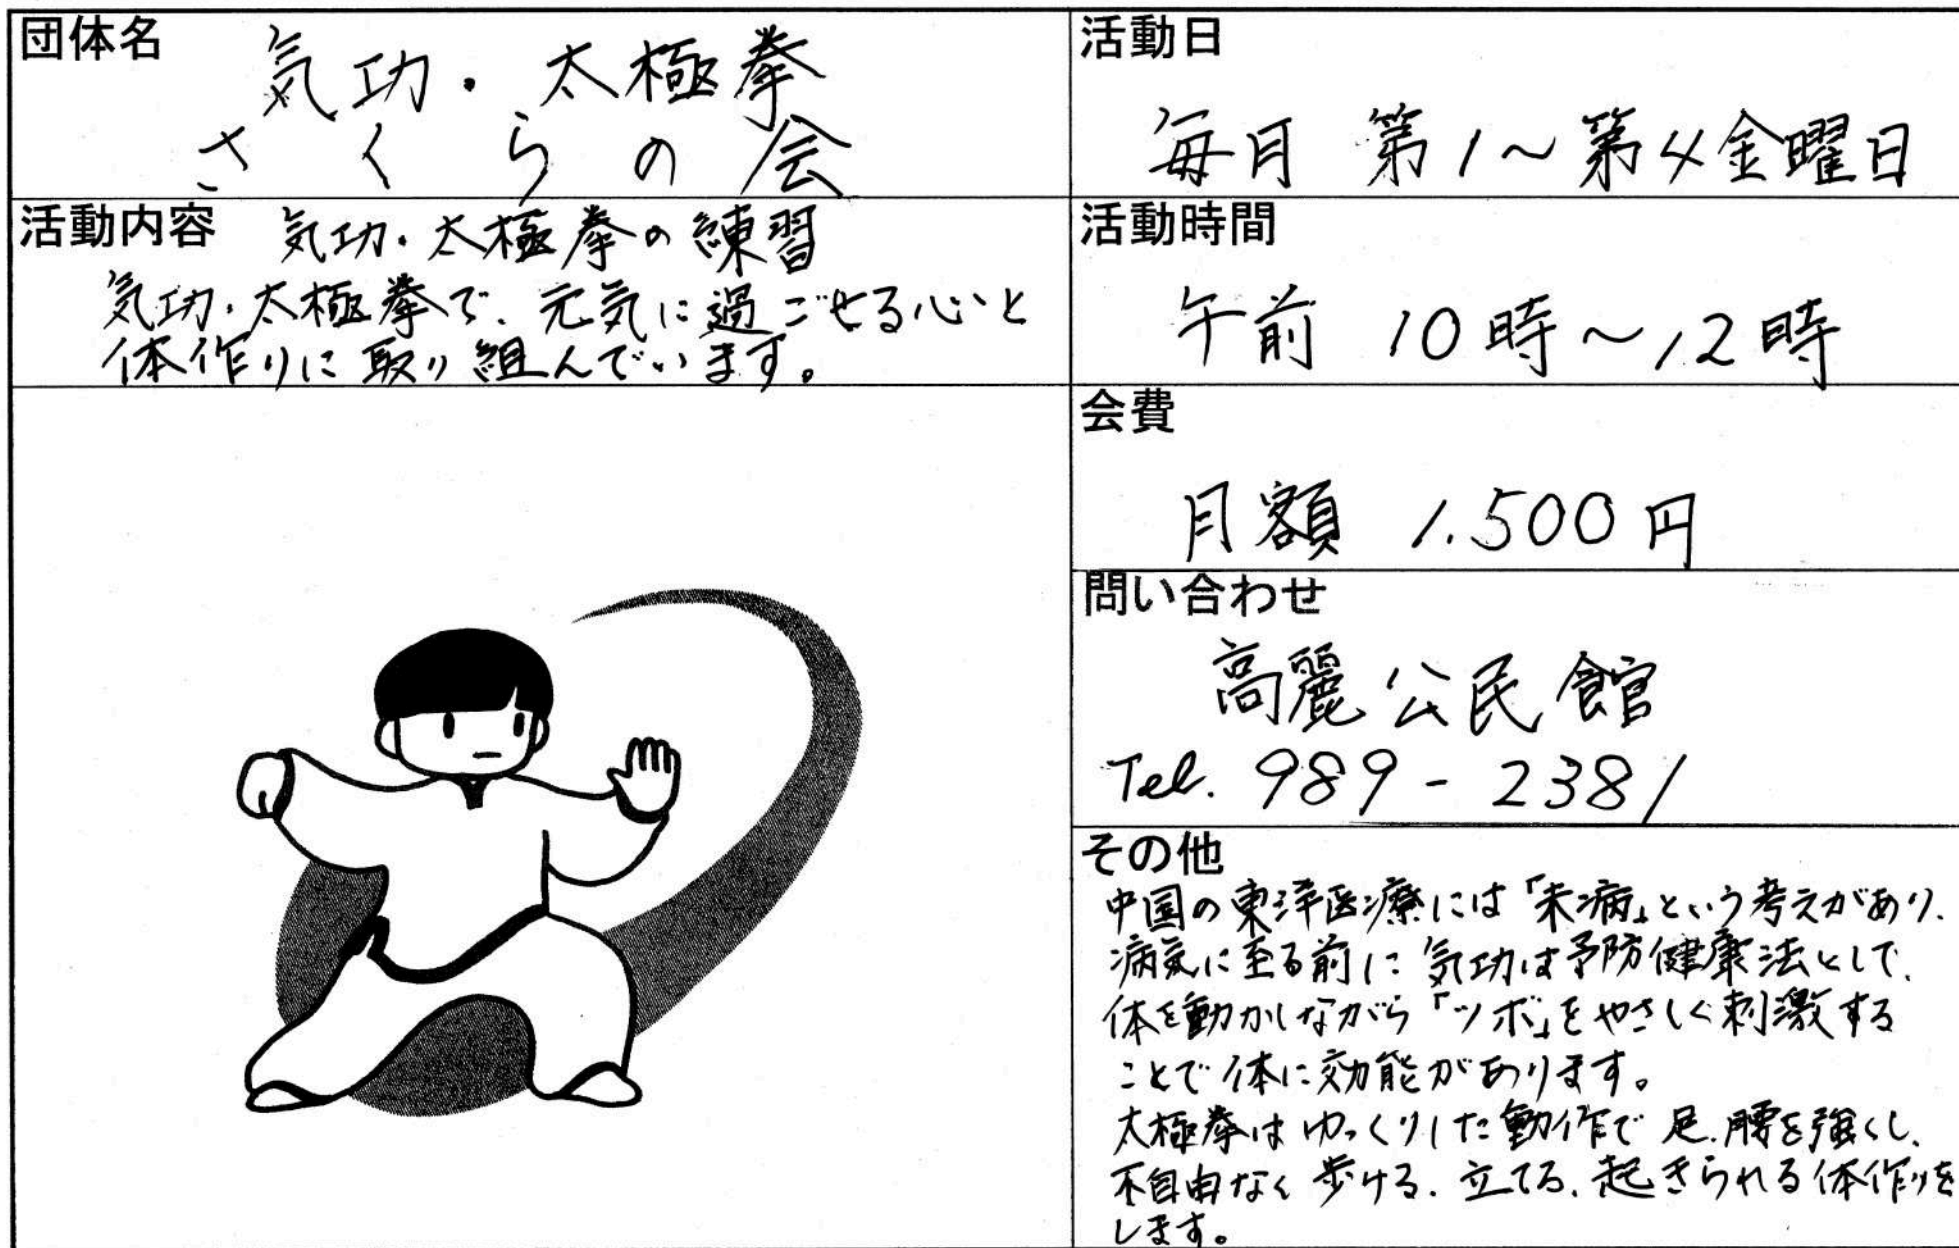 団体名
気功・太極拳
さくらの会
活動内容 気功・太極拳の練習
気功・太極拳で、元気に過ごせる心と
体作りに取り組んでいます。
活動日
毎月 第1～第4金曜日
活動時間
午前 10時～12時
会費
月額 1.500円
問い合わせ
高麗公民館
Tel. 989-2381
その他
中国の東洋医療には「未病」という考えがあり、
病気に至る前に気功は予防健康法として、
体を動かしながら「ツボ」をやさしく刺激する
ことで体に効能があります。
太極拳はゆっくりした動作で足、腰を強くし、
不自由なく歩ける、立てる、起きられる体作りを
します。